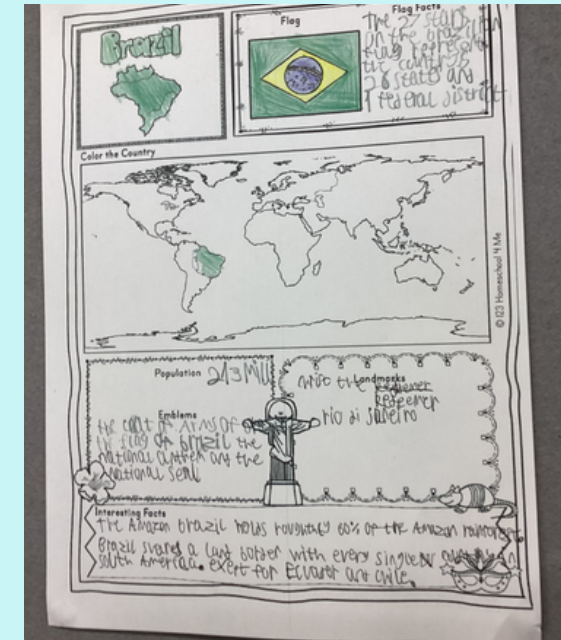 Brazil
Flag
Flag Facts
The 27 stars
on the brazilian
flag represents
the countrys
26 states and
1 federal district
Color the Country
© 123 Homeschool 4 Me
Population 213 Mill
Landmarks
christ the redeemer
Redeemer
rio di janeiro
Emblems
the coat of arms of
the flag of brazil the
national anthem and the
national seal
Interesting Facts
The Amazon brazil holds roughtly 60% of the Amazon rainforest
Brazil shared a land border with every single in
south America. exept for Ecuador and chile.